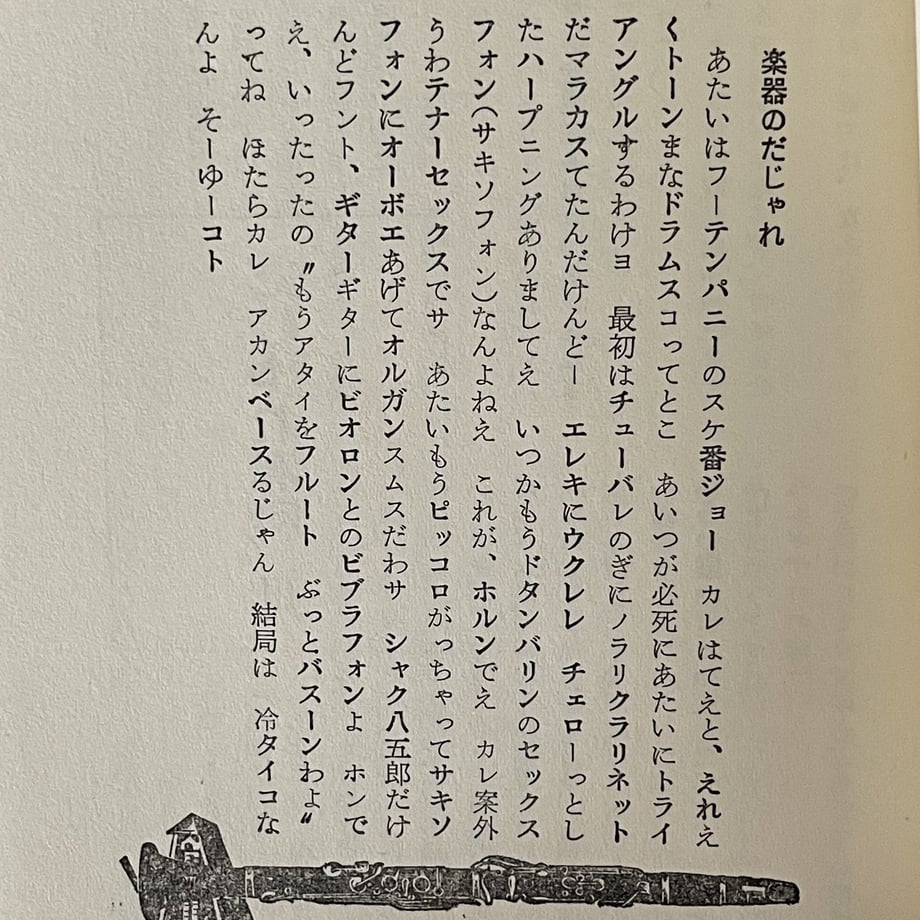 楽器のだじゃれ
あたいはフーテンパニーのスケ番ジョー　カレはてえと、えれえ
くトーンまなドラムスコってとこ　あいつが必死にあたいにトライ
アングルするわけヨ　最初はチューバレのぎにノラリクラリネット
だマラカスてたんだけんどー　エレキにウクレレ　チェローっとし
たハープニングありましてえ　いつかもうドタンバリンのセックス
フォン(サキソフォン)なんよねえ　これが、ホルンでえ　カレ案外
うわテナーセックスでサ　あたいもうピッコロがっちゃってサキソ
フォンにオーボエあげてオルガンスムスだわサ　シャク八五郎だけ
んどフント、ギターギターにビオロンとのビブラフォンよ　ホンで
え、いったったの〝もうアタイをフルート　ぶっとバスーンわよ〟
ってね　ほたらカレ　アカンベースるじゃん　結局は　冷タイコな
んよ　そーゆーコト